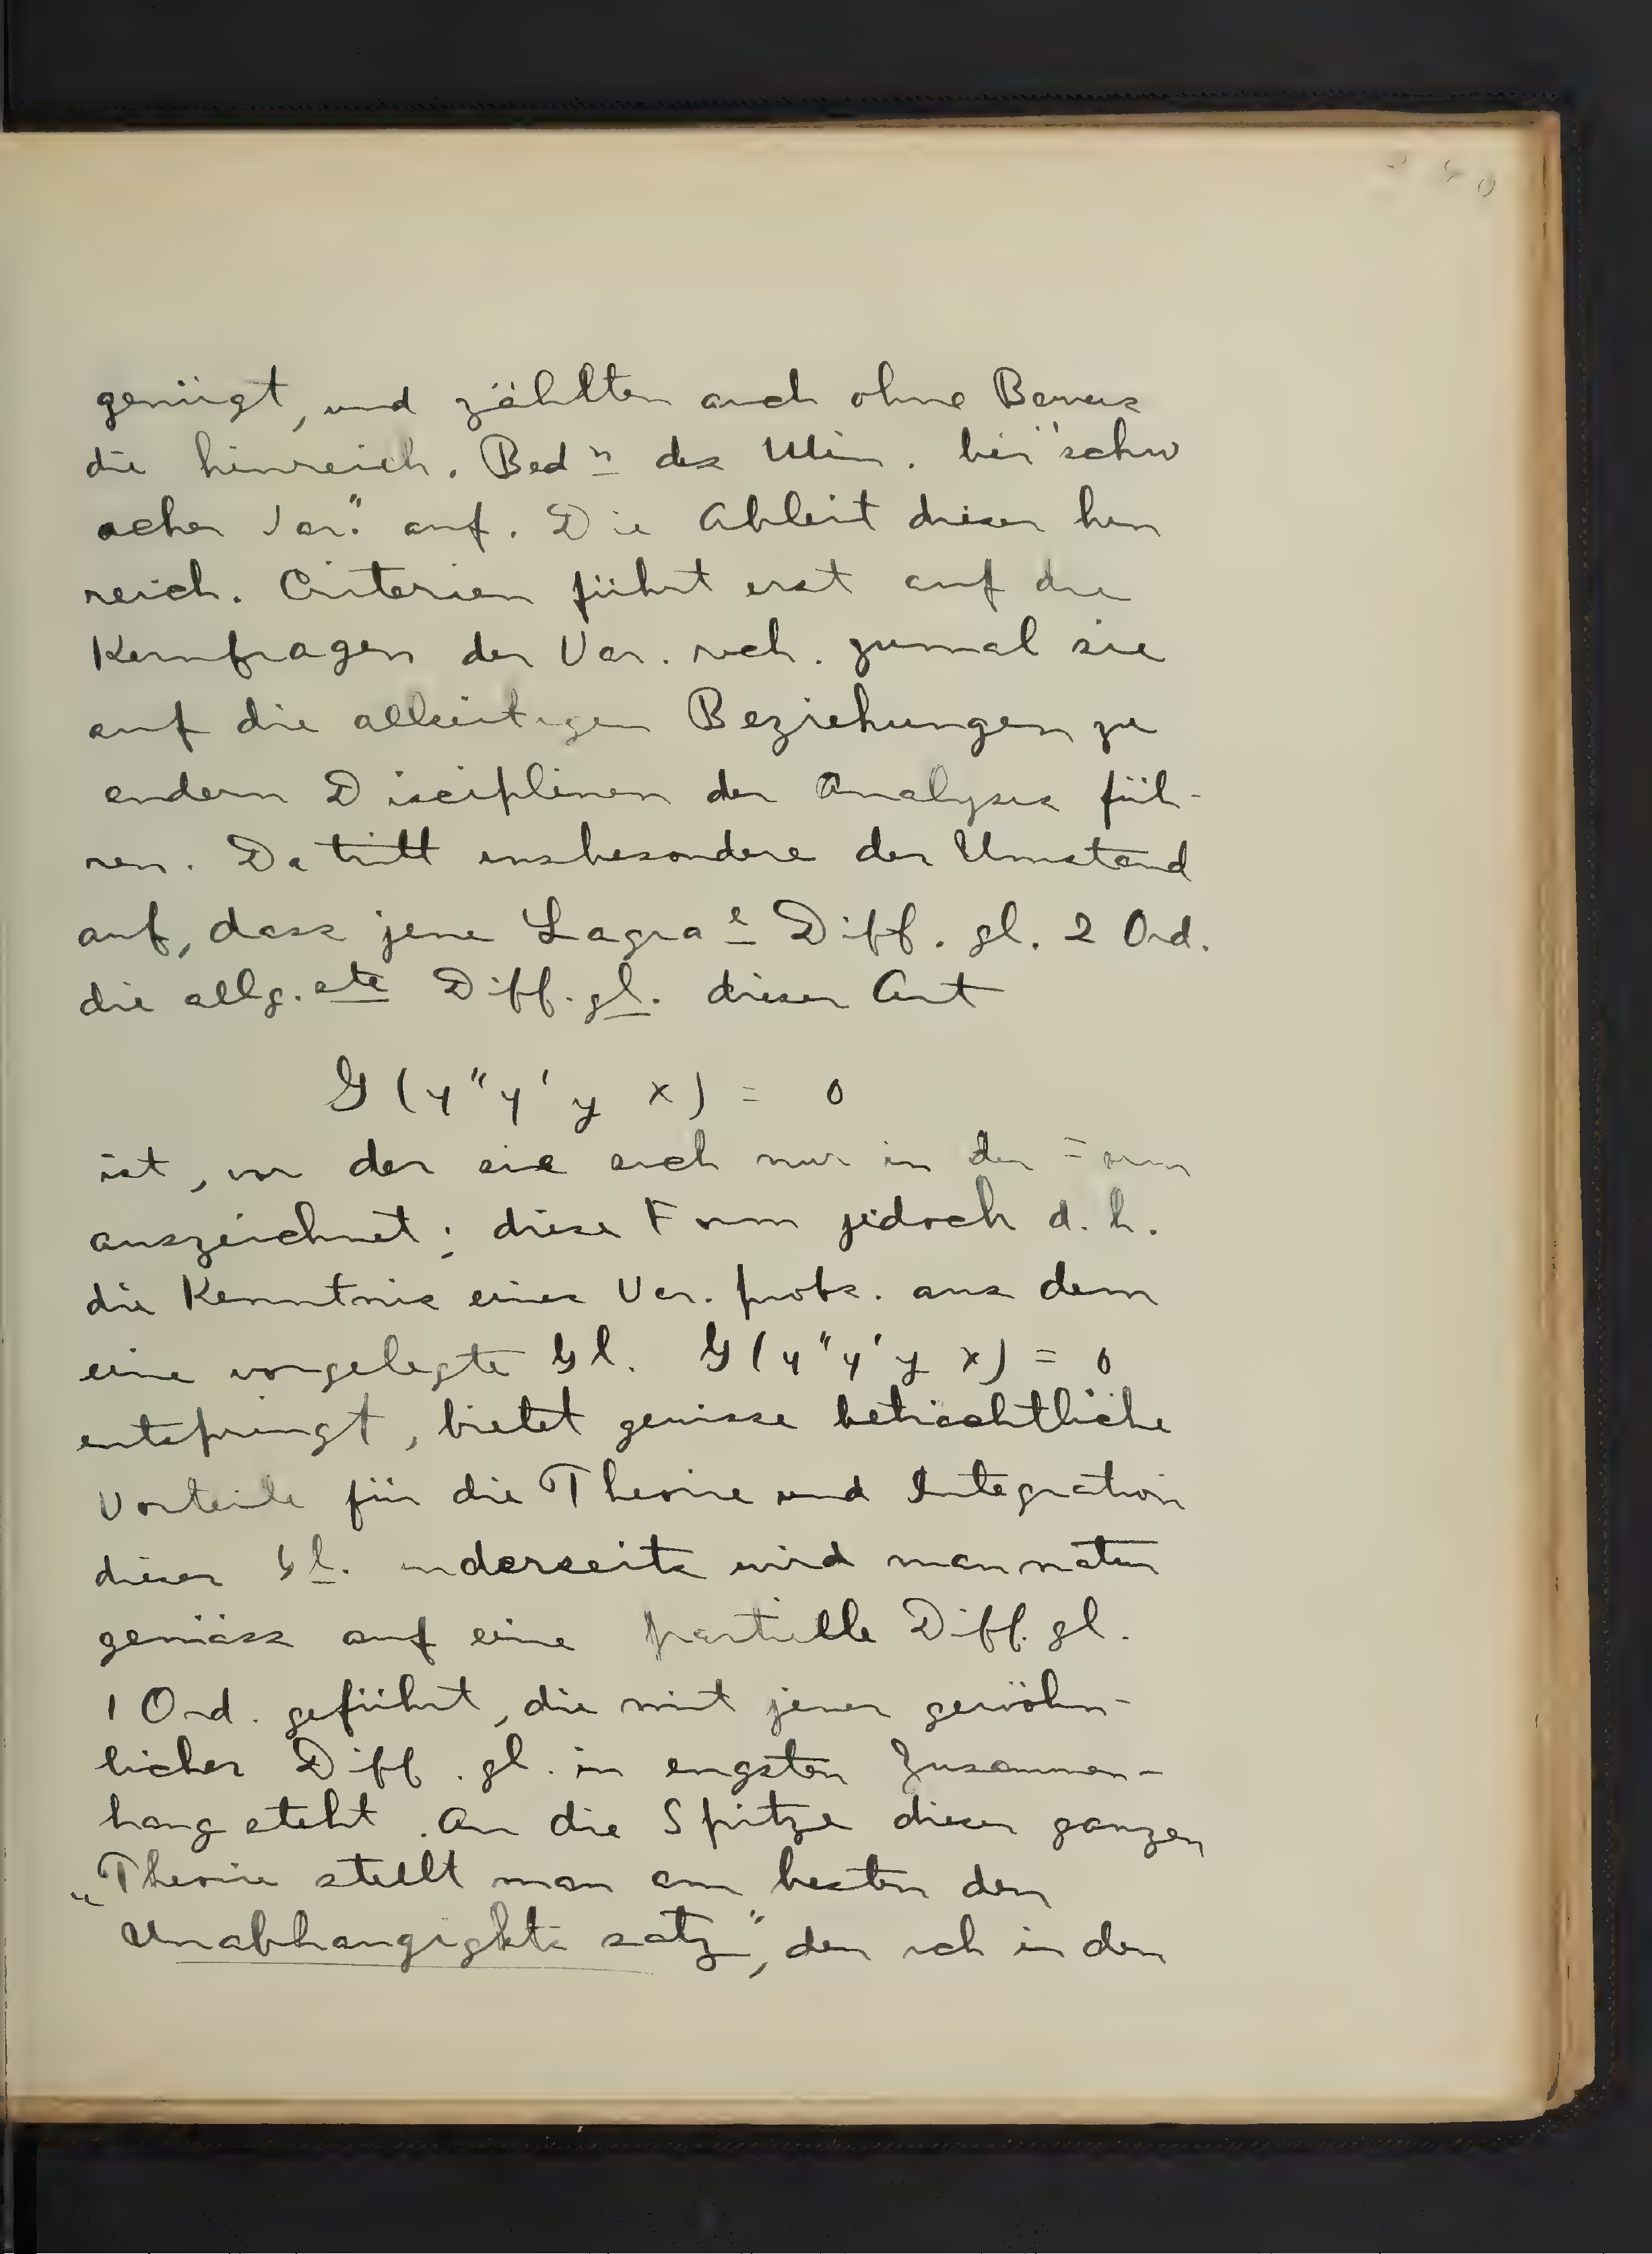 genügt, und zählten auch ohne Beweis
die hinreich. Bedn des Min. bei "schw
acher Var." auf. Die Ableit dieser hin
reich. Criterien führt erst auf die
Kernfragen der Var. rech. zumal sie
auf die allseitigen Beziehungen zu
andern Disciplinen der Analysis füh-
ren. Da tritt insbesondere der Umstand
auf, dass jene Lagra e Diff. gl. 2 Ord.
die allg.ste Diff.gl. dieser Art
G(y"y'y x) = 0
ist, von der sie sich nur in der Form
auszeichnet; diese Form jedoch d.h.
die Kenntnis eines Var. probs. aus dem
eine vorgelegte Gl. G(y"y'y x) = 0
entspringt, bietet gewisse beträchtliche
Vorteile für die Theorie und Integration
dieser Gl. anderseits wird man natur
gemäss auf eine partielle Diff. gl.
1 Ord. geführt, die mit jener gewöhn-
licher Diff. gl. in engsten Zusammen-
hang steht. An die Spitze dieser ganzen
Theorie stellt man am besten den
"Unabhangigkts satz", den ich in den